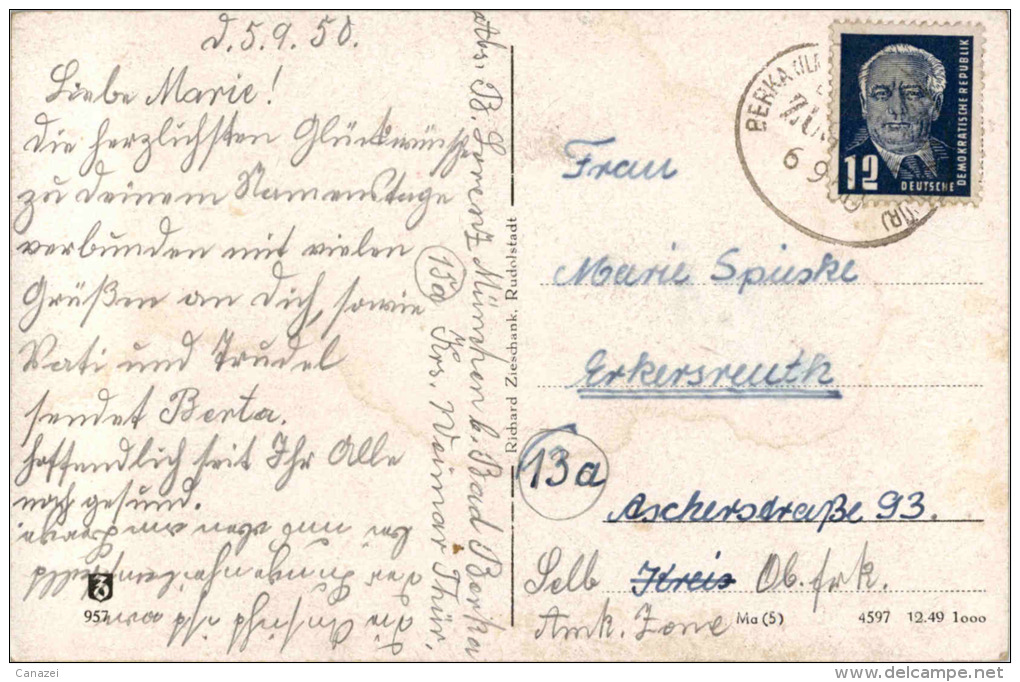 d. 5.9.50.
Liebe Marie!
Die herzlichsten Glückwünsche
zu deinem Namenstage
verbunden mit vielen
Grüßen an Dich, sowie
Vati und Trudel
sendet Berta.
Hoffendlich seit Ihr Alle
noch gesund.
die Ansicht ist
der
Abs. B. Lorenz München b. Bad Berka
15a Krs. Weimar Thür.
Richard Zieschank, Rudolstadt
957
BERKA (ILM
6 9
12
DEUTSCHE
DEMOKRATISCHE REPUBLIK
Frau
Marie Spieske
Erkersreuth
13a
Ascherstraße 93.
Selb Kreis Ob. frk.
Amk. Zone
Ma (5) 4597 12.49 1000
Canazei
www.delcampe.net